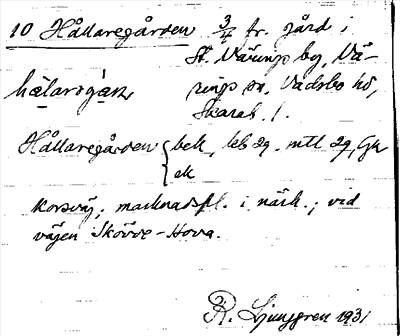 10 Hållaregården 3/4 fr. gård i
St. Värings by, Vä-
rings sn, Vadsbo hd,
Skarab. l.
hålarogá̱n
Hållaregården { bek, leb 29. mtl 29, Gk
ek
korsväg; marknadspl. i närh.; vid
vägen Skövde-Hova.
R. Ljunggren 1931